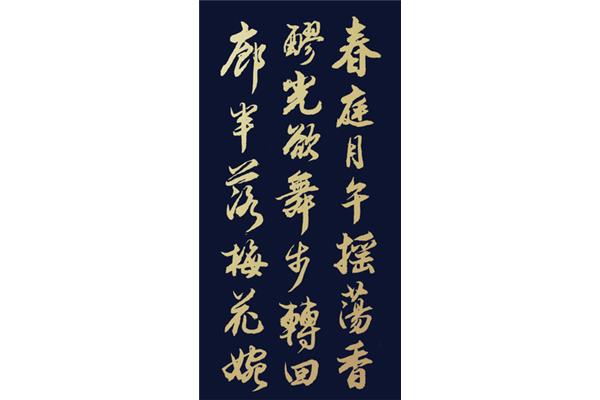 春庭月午摇蕩香
醪光欲舞步轉回
廊半落梅花婉